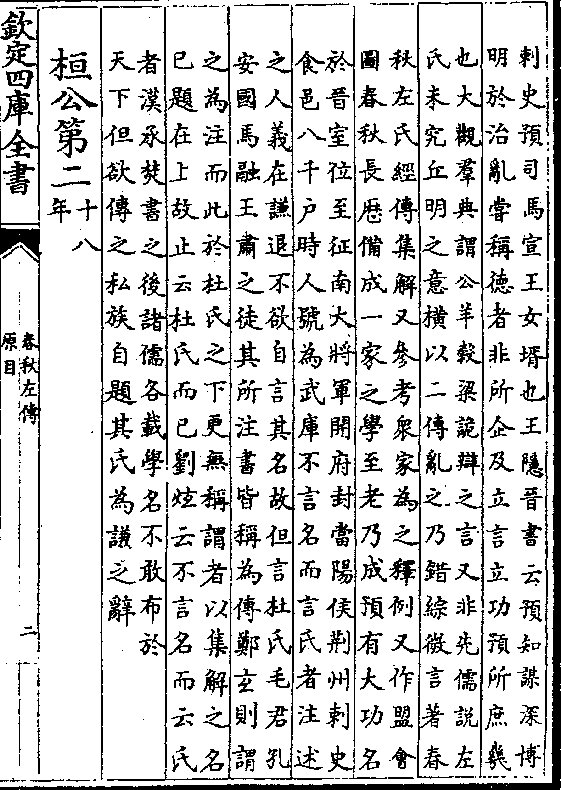 刺史預司馬宣王女壻也王隱晉書云預知謀深博
明於治亂嘗稱德者非所企及立言立功預所庶幾
也大觀羣典謂公羊穀梁詭辯之言又非先儒說左
氏未究丘明之意橫以二傳亂之乃錯綜微言著春
秋左氏經傳集解又參考衆家為之釋例又作盟會
圖春秋長歴備成一家之學至老乃成預有大功名
於晉室位至征南大將軍開府封當陽侯荆州刺史
食邑八千户時人號為武庫不言名而言氏者注述
之人義在謙退不欲自言其名故但言杜氏毛君孔
安國馬融王肅之徒其所注書皆稱為傳鄭玄則謂
之為注而此於杜氏之下更無稱謂者以集解之名
已題在上故止云杜氏而已劉炫云不言名而云氏
者漢承焚書之後諸儒各載學名不敢布於
天下但欲傳之私族自題其氏為謙之辭
桓公第二
十八
年
欽定四庫全書
春秋左傳
原目
二